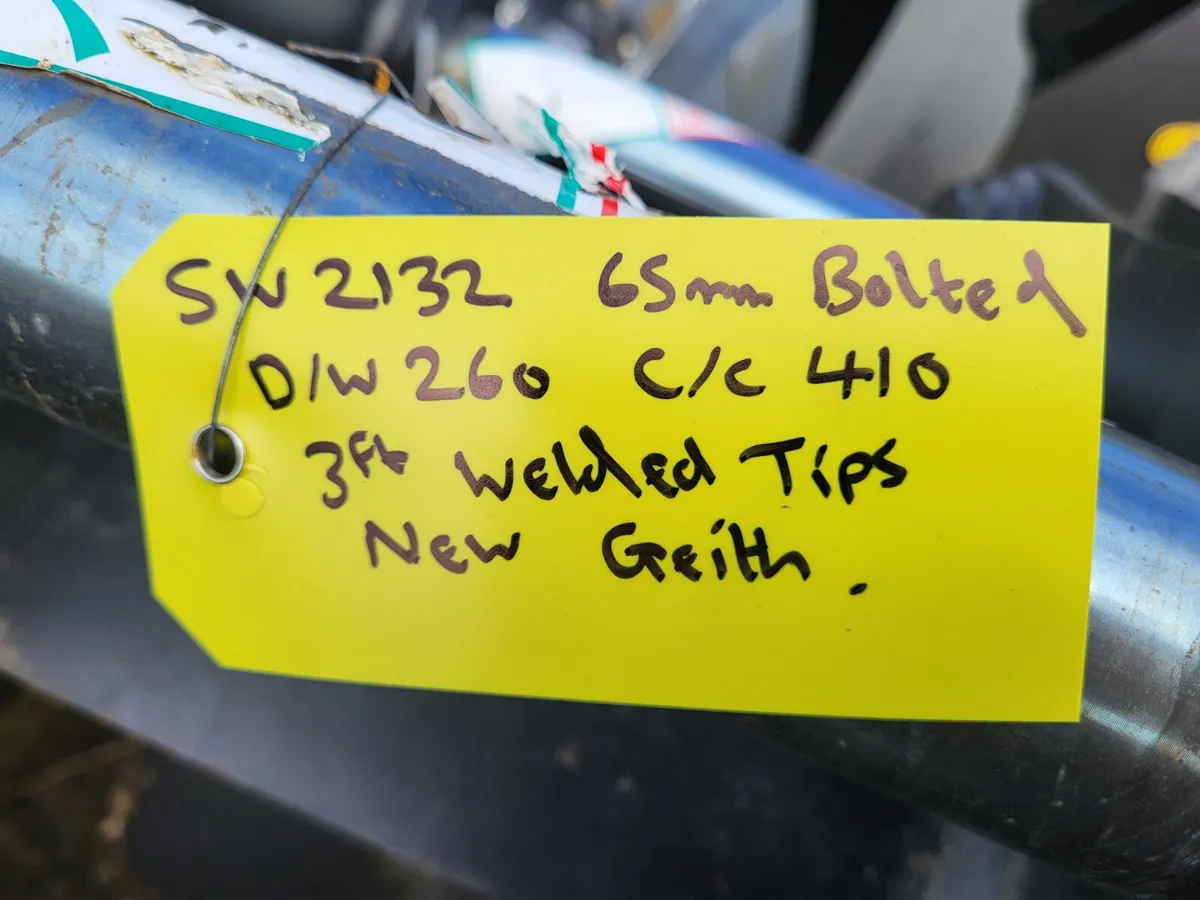 SW2132 65mm Bolted
D/W 260 C/C 410
3Ft Welded Tips
New Geith.